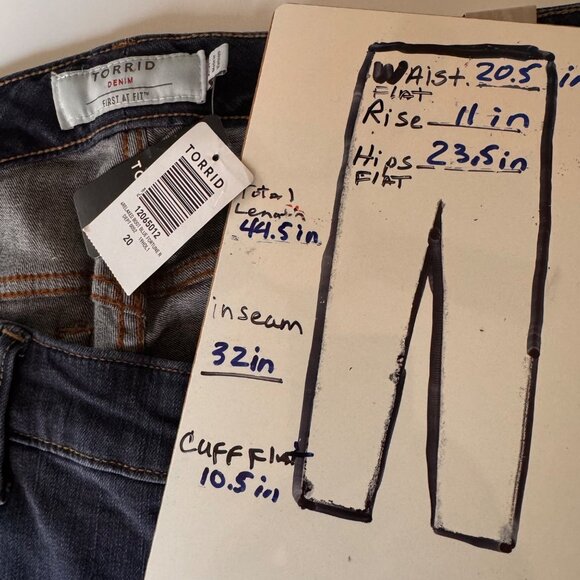 TORRID
DENIM
FIRST AT FIT™
TORRID
12065012
20
WAist. 20.5 in
FlAT
Rise 11 in
Hips 23.5 in
FlAT
Total
Length
44.5 in
inseam
32 in
Cuff Flat
10.5 in